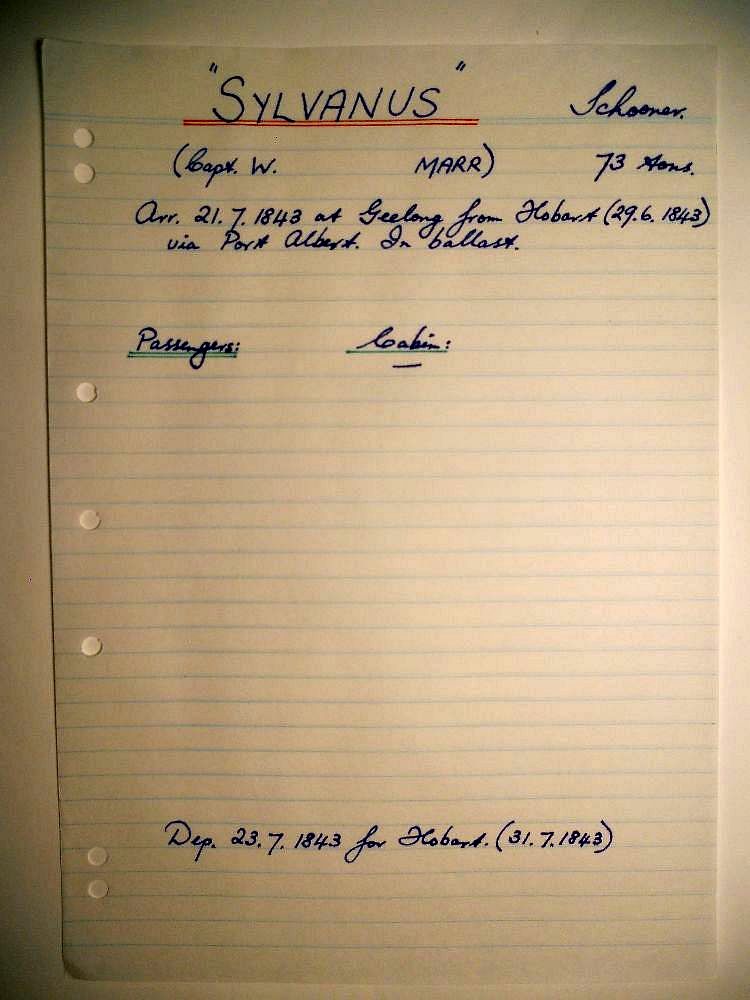 "SYLVANUS" Schooner.
(Capt. W. MARR) 73 tons.
Arr. 21.7.1843 at Geelong from Hobart (29.6.1843)
via Port Albert. In ballast.
Passengers: Cabin:
—
Dep. 23.7.1843 for Hobart. (31.7.1843)